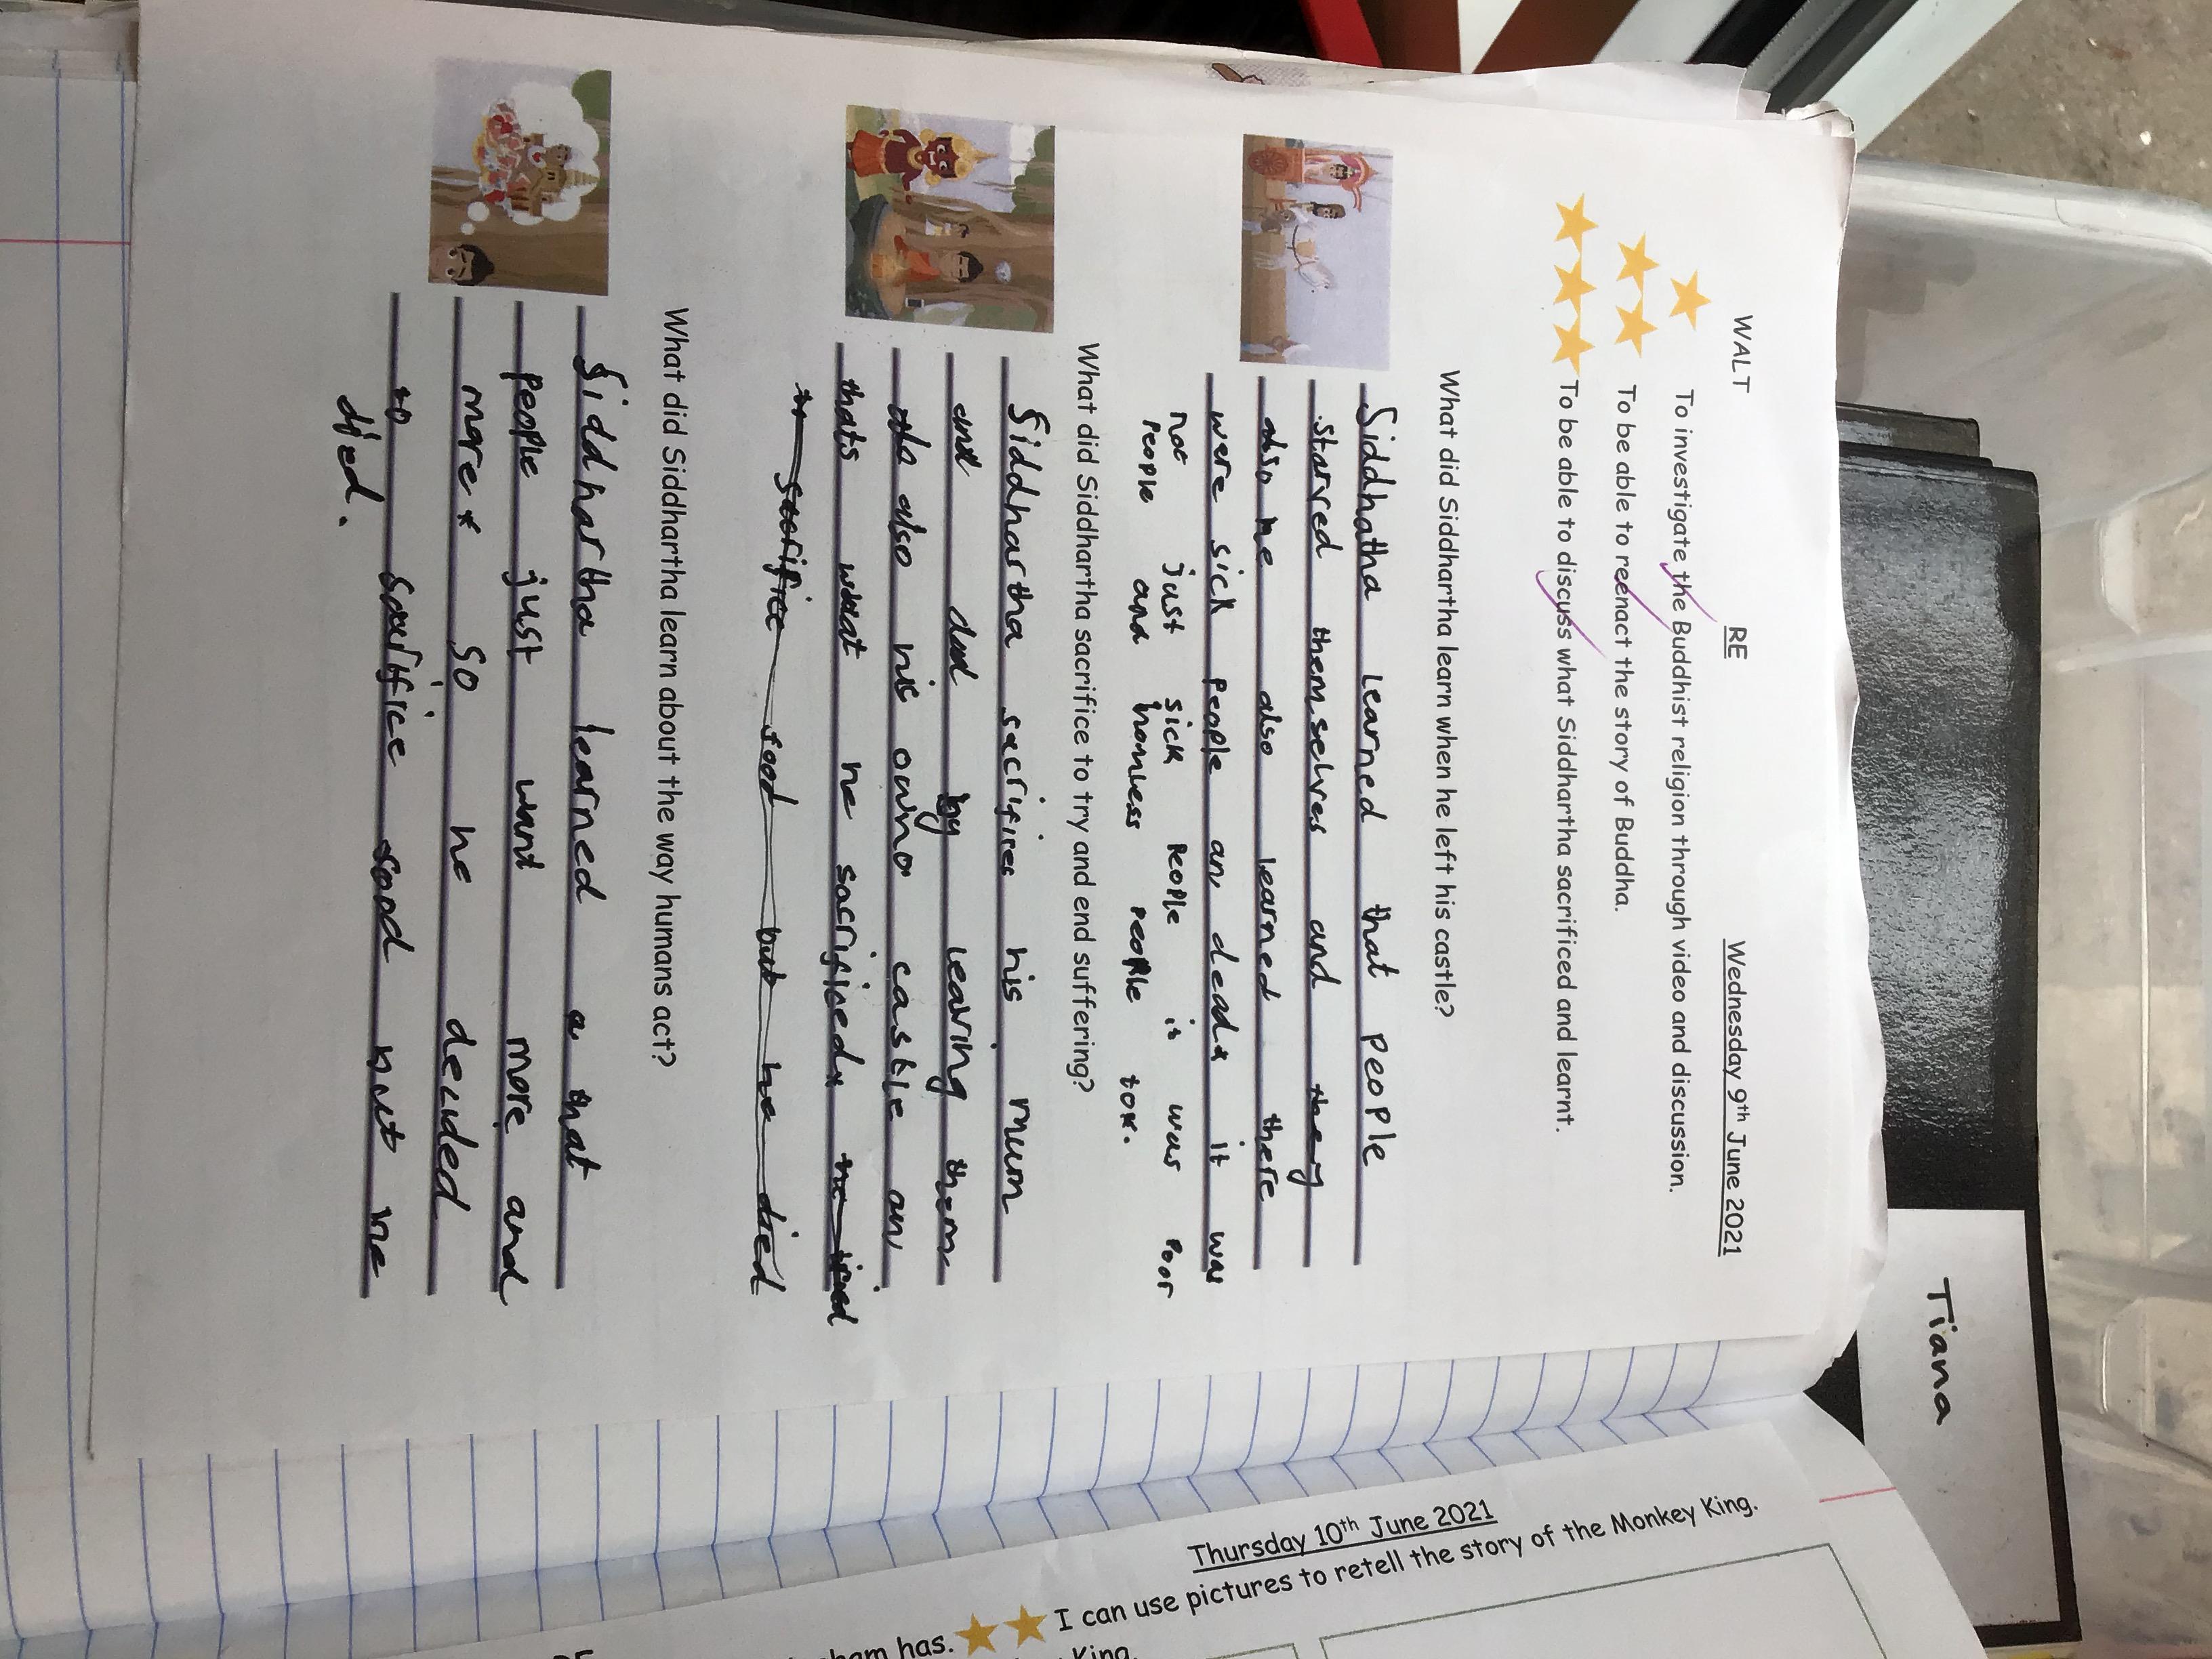 WALT RE Wednesday 9th June 2021
To investigate the Buddhist religion through video and discussion.
To be able to reenact the story of Buddha.
To be able to discuss what Siddhartha sacrificed and learnt.
What did Siddhartha learn when he left his castle?
Siddhatha learned that people
starved themselves and they
also he also learned there
were sick people an dead it was
not just sick people it was poor
people and homeless people too.
What did Siddhartha sacrifice to try and end suffering?
Siddhartha sacrifice his mum
and dad by leaving them
also his own castle an
thats what he sacrificed he tried
to sacrifice food but he died
What did Siddhartha learn about the way humans act?
Siddhartha learned a that
people just want more and
more so he decided
to sacrifice food but he
died.
Tiana
Thursday 10th June 2021
I can use pictures to retell the story of the Monkey King.
has.
King.